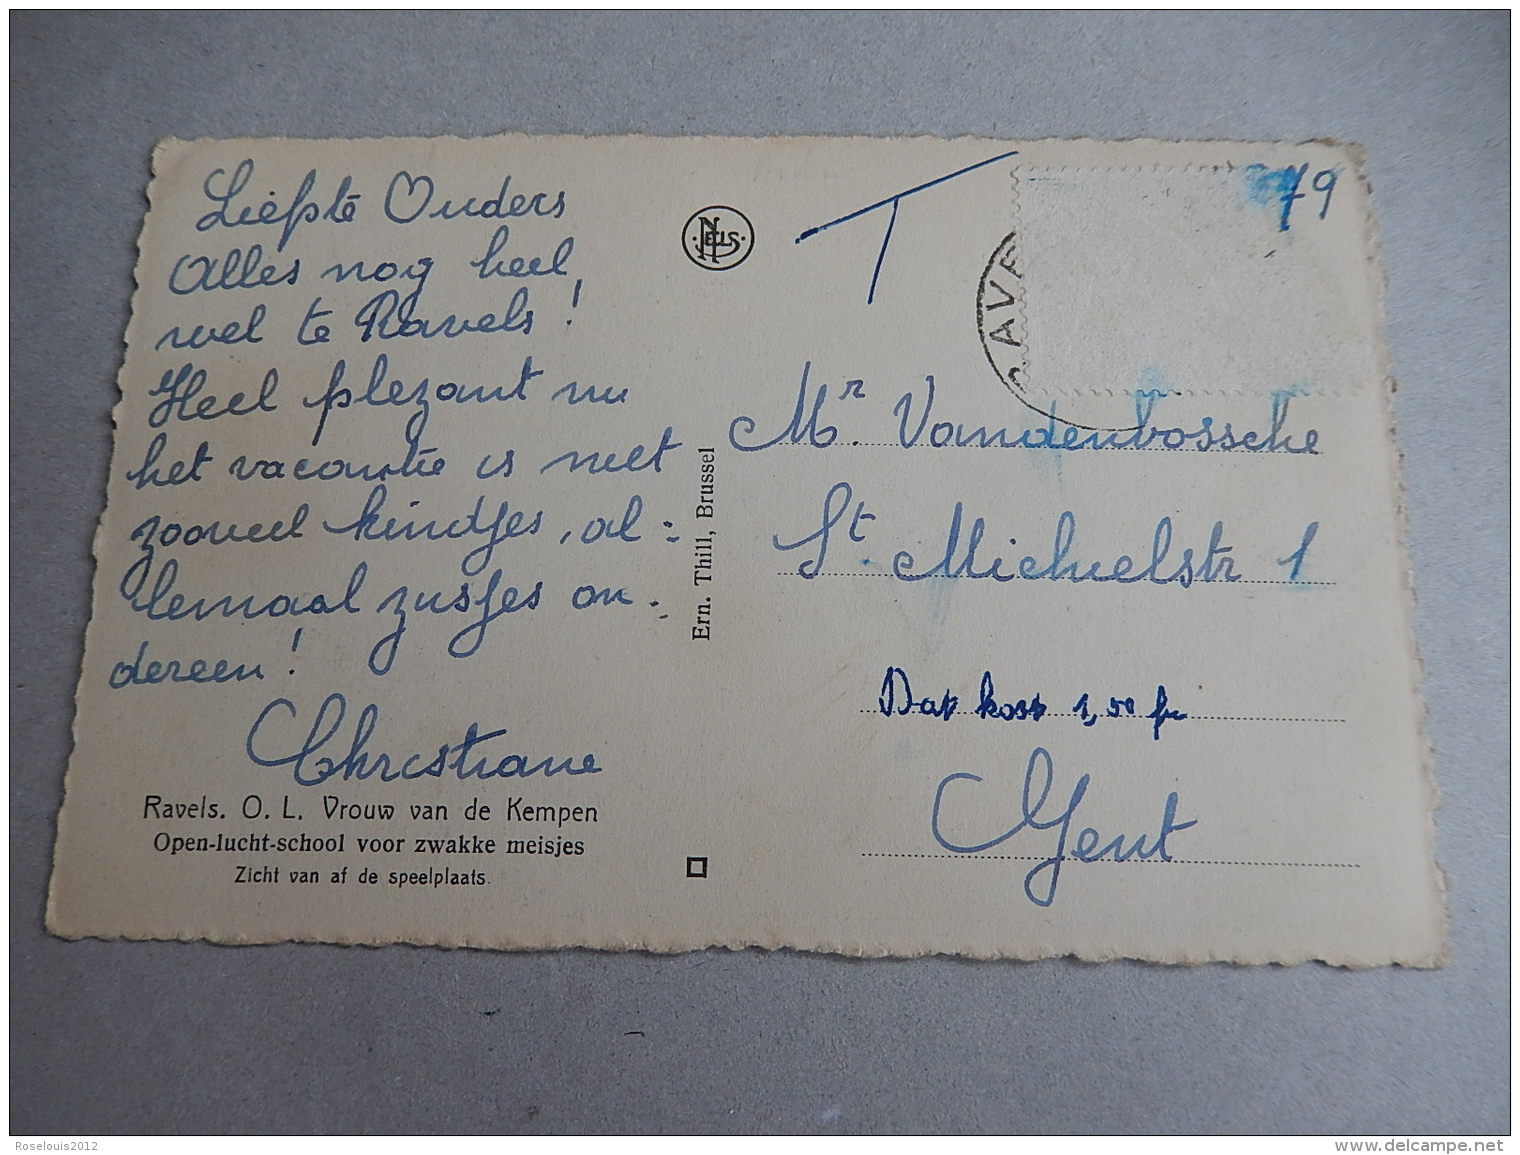 Liefste Ouders
Alles nog heel
wel te Ravels!
Heel plezant nu
het vacantie is niet
zooveel kindjes, al=
lemaal zusjes on.
dereen!
Christiane
Ravels. O. L. Vrouw van de Kempen
Open-lucht-school voor zwakke meisjes
Zicht van af de speelplaats.
NELS
Ern. Thill, Brussel
T
79
RAVE
Mr. Vandenbossche
St. Michielstr 1
Dat kost 1,50 fr
Gent
Roselouis2012
www.delcampe.net